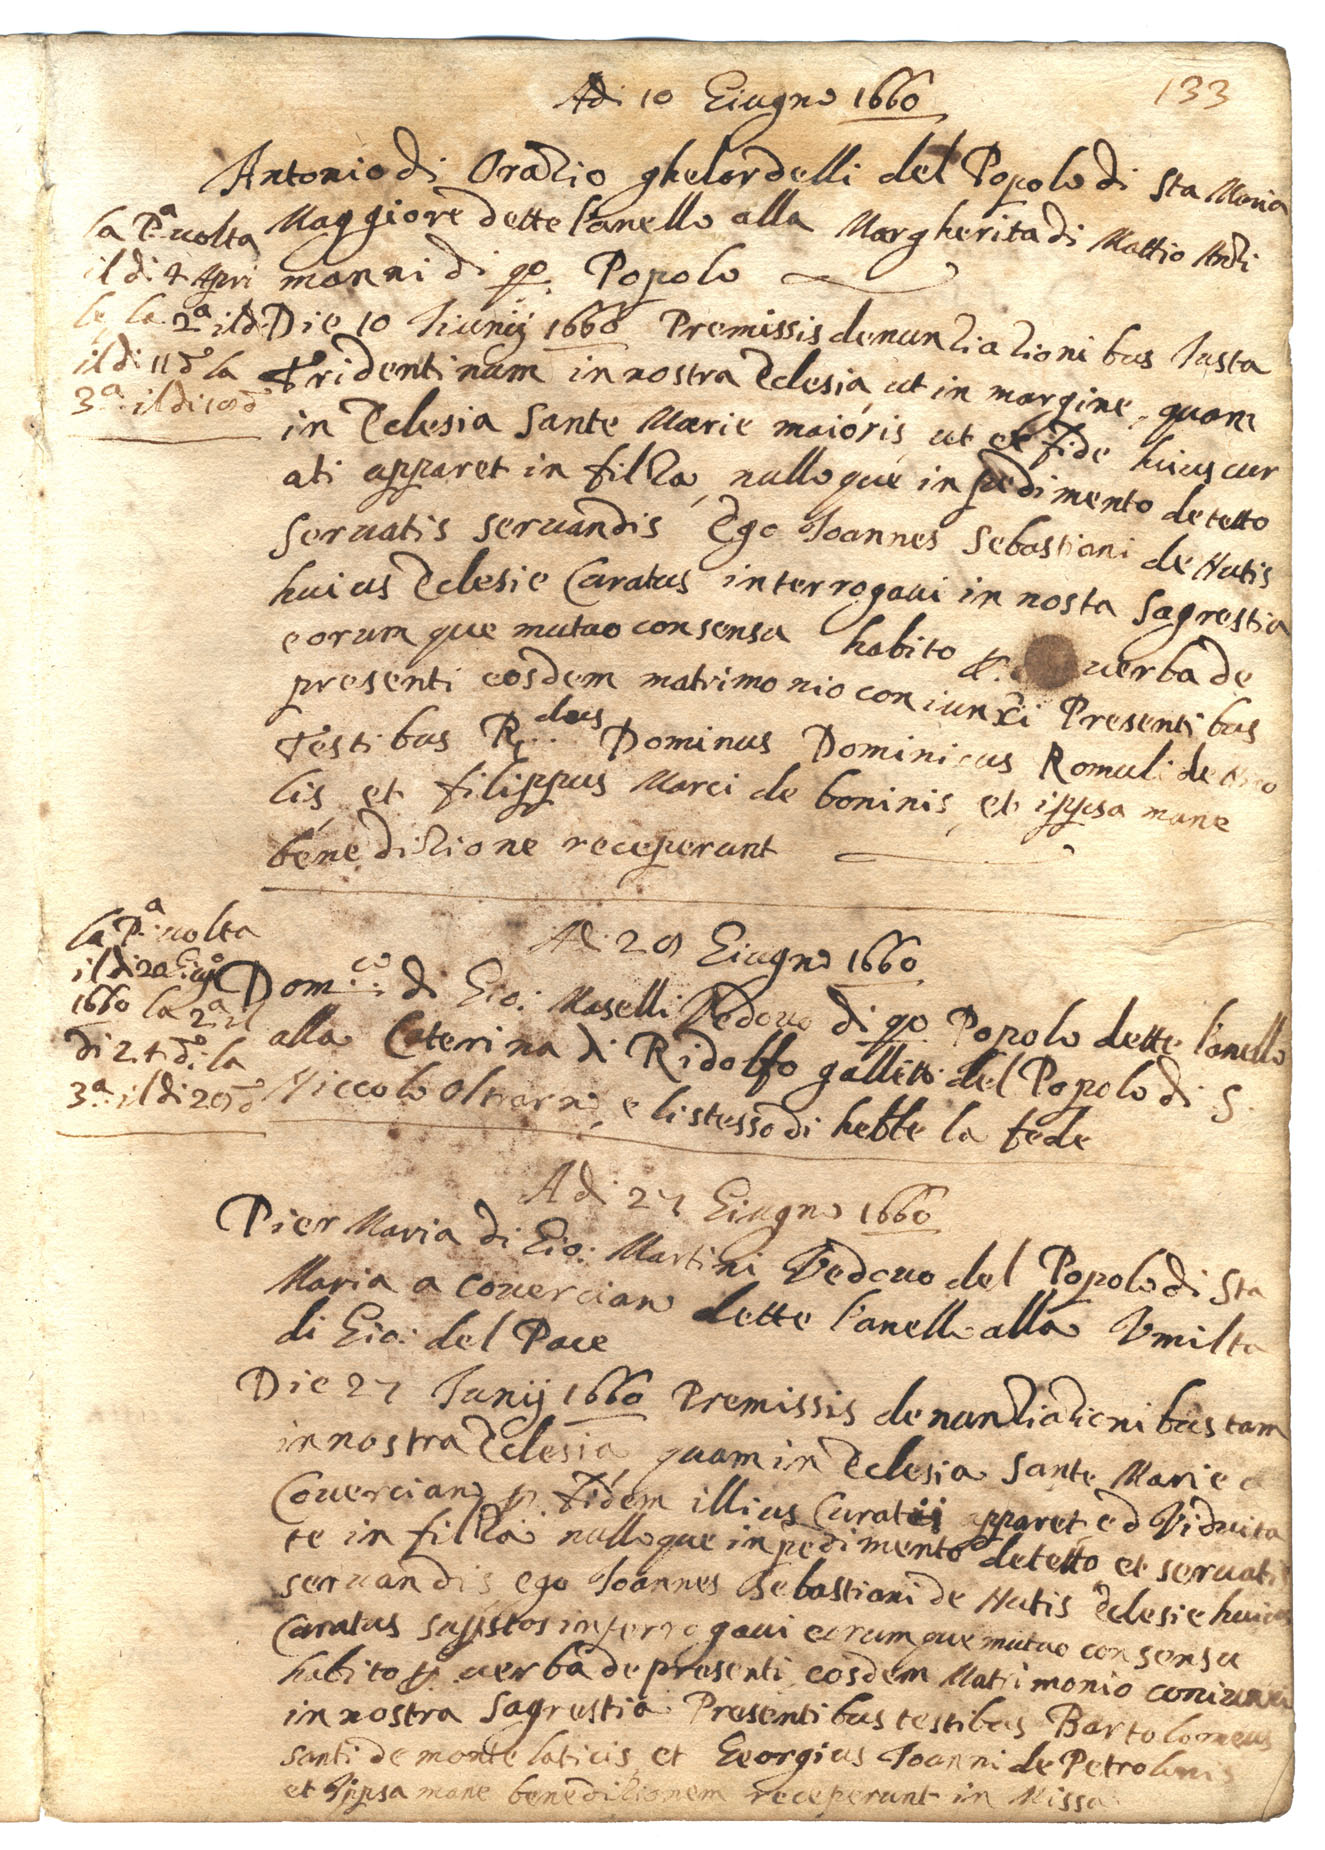 133
Adi 10 Giugno 1660
Antonio di Orazio ghelardelli del Popolo di Sta Maria
Maggiore dette l'anello alla Margherita di Mattio
manni di qo Popolo
la Pa uolta
il di 4 Apri
le la 2a il di
il di 11 do la
3a il di
Die 10 Iunij 1660 Premissis denunziazionibus Iusta
Tridentinum in nostra Eclesia, ut in margine, quam
in Eclesia Sante Marie maioris, ut ex fide huius cur
ati apparet in filza, nulloque inpedimento detetto
seruatis seruandis Ego Ioannes Sebastiani de Hutis
huius Eclesie Curatus interrogaui in nosta Sagrestia
eorumque mutuo consensu habito p. uerba de
presenti eosdem matrimonio coniunxi Presentibus
Testibus R.dus Dominus Dominicus Romuli de
lis, et filippus Marci de boninis, et ippsa mane
benedizione receperunt
Adi 29 Giugno 1660
la Pa uolta
il di 20 Giugo
1660 la 2a il
di 24 do la
3a il di 29 do
Dom.co di Gio: Maselli Vedouo di qo Popolo dette l'anello
alla Caterina di Ridolfo galletti del Popolo di S.
Niccolo Oltrarno, e listesso di hebbe la fede
Adi 27 Giugno 1660
Pier Maria di Gio: Martini Vedouo del Popolo di Sta
Maria a Couerciano dette l'anello alla Vmilta
di Gio: del Pace
Die 27 Iunij 1660 Premissis denunziazionibus tam
in nostra Eclesia, quam in Eclesia Sante Marie a
Couerciano p. fidem illius Curati apparet, ed Viduita
te in filza nulloque inpedimento detetto et seruatis
seruandis, ego Ioannes Sebastiani de Hutis Eclesie huius
Curatus suppstos interrogaui eorumque mutuo consensu
habito p. uerba de presenti, eosdem Matrimonio coniunxi
in nostra Sagrestia Presentibus testibus Bartolomeus
Santi de monte laticis, et Georgius Ioanni de
et Ippsa mane benedizionem receperunt in Missa